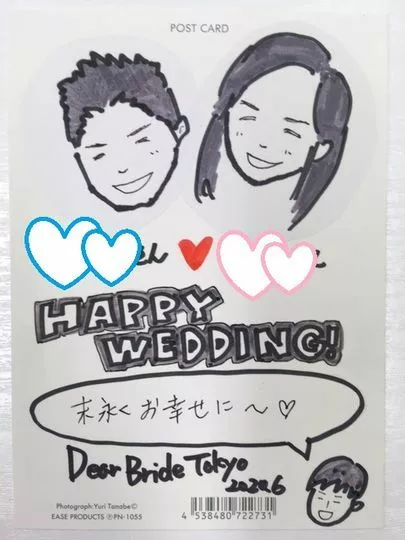 POST CARD
HAPPY
WEDDING!
末永く お幸せに〜♡
Dear Bride Tokyo
Photograph:Yuri Tanabe©
EASE PRODUCTS ℗PN-1055
4 538480 722731